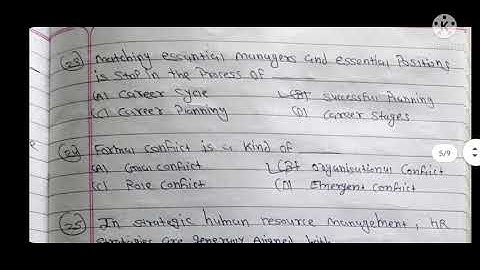 (23) Matching essential managers and essential Positions
is step in the Process of
(A) Career Sycle (B) successful Planning
(C) Career Planning (D) Career Stages
(24) Formal conflict is a kind of
(A) Goal conflict (B) Organisational Conflict
(C) Role Conflict (D) Emergent conflict
5/9
(25) In strategic human resource management, HR
strategies are generally aligned with